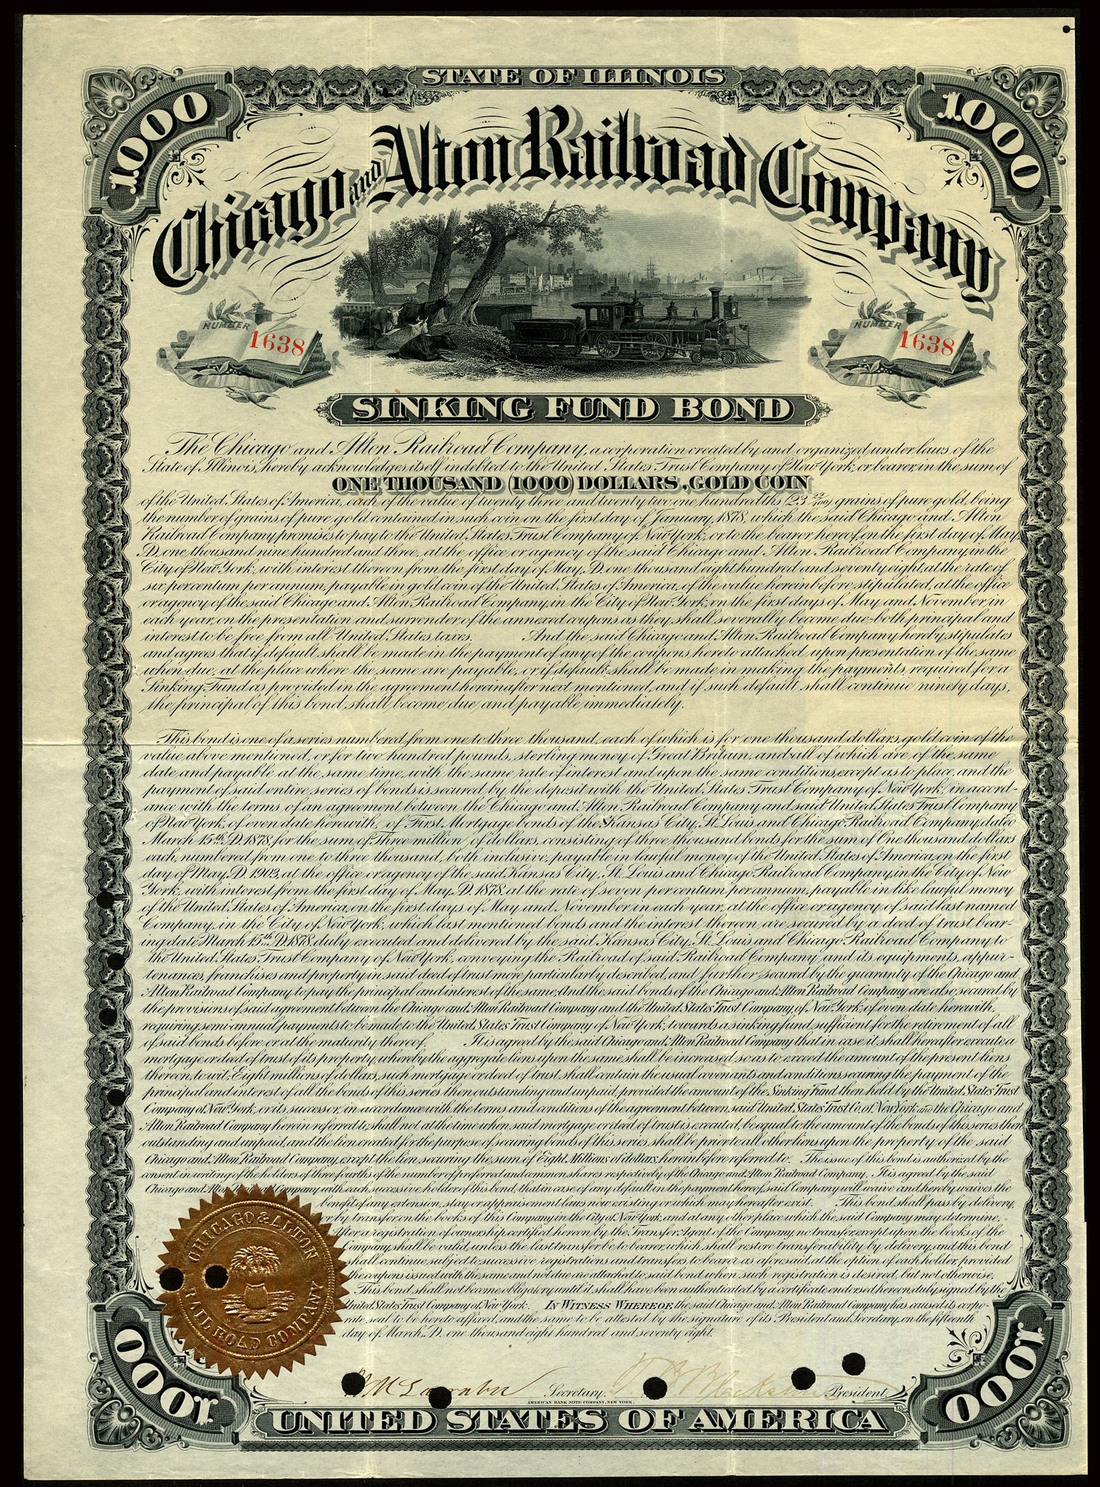 STATE OF ILLINOIS
1000
1000
Chicago and Alton Railroad Company
NUMBER 1638
NUMBER 1638
SINKING FUND BOND
The Chicago and Alton Railroad Company, a corporation created by and organized under laws of the
State of Illinois, hereby acknowledges itself indebted to the United States Trust Company of New York, or bearer, in the sum of
ONE THOUSAND (1000) DOLLARS, GOLD COIN
of the United States of America, each of the value of twenty three and twenty two one hundredths (23 22/100) grains of pure gold, being
the number of grains of pure gold contained in such coin on the first day of January, 1878, which the said Chicago and Alton
Railroad Company promises to pay to the United States Trust Company of New York, or to the bearer hereof, on the first day of May,
D. one thousand nine hundred and three, at the office or agency of the said Chicago and Alton Railroad Company, in the
City of New York, with interest thereon from the first day of May, D. one thousand eight hundred and seventy eight, at the rate of
six per centum per annum, payable in gold coin of the United States of America, of the value herein before stipulated, at the office
or agency of the said Chicago and Alton Railroad Company, in the City of New York, on the first days of May and November in
each year, on the presentation and surrender of the annexed coupons as they shall severally become due both principal and
interest to be free from all United States taxes. And the said Chicago and Alton Railroad Company hereby stipulates
and agrees that if default shall be made in the payment of any of the coupons hereto attached upon presentation of the same
when due, at the place where the same are payable, or if default shall be made in making the payments required for a
Sinking Fund as provided in the agreement hereinafter next mentioned, and if such default shall continue ninety days,
the principal of this bond, shall become due and payable immediately.
This bond is one of a series numbered from one to three thousand, each of which is for one thousand dollars gold coin of the
value above mentioned, or for two hundred pounds, sterling money of Great Britain, and all of which are of the same
date and payable at the same time, with the same rate of interest and upon the same conditions, except as to place, and the
payment of said entire series of bonds is secured by the deposit with the United States Trust Company of New York, in accord-
ance with the terms of an agreement between the Chicago and Alton Railroad Company and said United States Trust Company
of New York, of even date herewith, of First Mortgage bonds of the Kansas City, St. Louis and Chicago Railroad Company, dated
March 15th D. 1878, for the sum of Three million of dollars, consisting of three thousand bonds for the sum of One thousand dollars
each, numbered from one to three thousand, both inclusive, payable in lawful money of the United States of America, on the first
day of May, D. 1903, at the office or agency of the said Kansas City, St. Louis and Chicago Railroad Company, in the City of New
York, with interest from the first day of May, D. 1878, at the rate of seven per centum per annum, payable in like lawful money
of the United States of America, on the first days of May and November in each year, at the office or agency of said last named
Company, in the City of New York, which last mentioned bonds and the interest thereon are secured by a deed of trust bear-
ing date March 15th D. 1878, duly executed and delivered by the said Kansas City, St. Louis and Chicago Railroad Company to
the United States Trust Company of New York, conveying the Railroad of said Railroad Company and its equipments, appur-
tenances, franchises and property, in said deed of trust more particularly described, and further secured by the guaranty of the Chicago and
Alton Railroad Company to pay the principal and interest of the same. And the said bonds of the Chicago and Alton Railroad Company are also secured by
the provisions of said agreement between the Chicago and Alton Railroad Company and the United States Trust Company, of New York, of even date herewith,
requiring semi-annual payments to be made to the United States Trust Company of New York, towards a sinking fund, sufficient for the retirement of all
of said bonds before or at the maturity thereof. It is agreed by the said Chicago and Alton Railroad Company that in case it shall hereafter execute a
mortgage or deed of trust of its property, whereby the aggregate liens upon the same shall be increased, so as to exceed the amount of the present liens
thereon, to wit, Eight millions of dollars, such mortgage or deed of trust shall contain the usual covenants and conditions securing the payment of the
principal and interest of all the bonds of this series then outstanding and unpaid, provided the amount of the Sinking Fund then held by the United States Trust
Company of New York, or its successor, in accordance with the terms and conditions of the agreement between said United States Trust Co. of New York and the Chicago and
Alton Railroad Company herein referred to, shall not at the time when said mortgage or deed of trust is executed, be equal to the amount of the bonds of this series then
outstanding and unpaid, and the lien created for the purpose of securing bonds of this series, shall be prior to all other liens upon the property of the said
Chicago and Alton Railroad Company, except the lien securing the sum of Eight Millions of dollars, herein before referred to. The issue of this bond is authorized by the
consent in writing of the holders of three fourths of the number of preferred and common shares respectively of the Chicago and Alton Railroad Company. It is agreed by the said
Chicago and Alton Railroad Company with each successive holder of this bond, that in case of any default in the payment hereof, said Company will waive and hereby waives the
benefit of any extension, stay or appraisement laws now existing or which may hereafter exist. This bond shall pass by delivery,
or by transfer on the books of this Company in the City of New York, and at any other place which the said Company may determine.
After a registration of ownership certified hereon by the Transfer Agent of the Company, no transfer except upon the books of the
Company, shall be valid, unless the last transfer be to bearer, which shall restore transferability by delivery, and this bond
shall continue subject to successive registrations and transfers to bearer, as aforesaid, at the option of each holder, provided
the coupons issued with the same and not due are attached to said bond when such registration is desired, but not otherwise.
This bond shall not become obligatory until it shall have been authenticated by a certificate endorsed hereon, duly signed by the
United States Trust Company of New York. IN WITNESS WHEREOF, the said Chicago and Alton Railroad Company, has caused its corpo-
rate seal to be hereto affixed, and the same to be attested by the signature of its President and Secretary, on the fifteenth
day of March, D. one thousand eight hundred and seventy eight.
CHICAGO & ALTON
RAILROAD COMPANY
Secretary.
President.
AMERICAN BANK NOTE COMPANY, NEW YORK.
1000
UNITED STATES OF AMERICA
1000